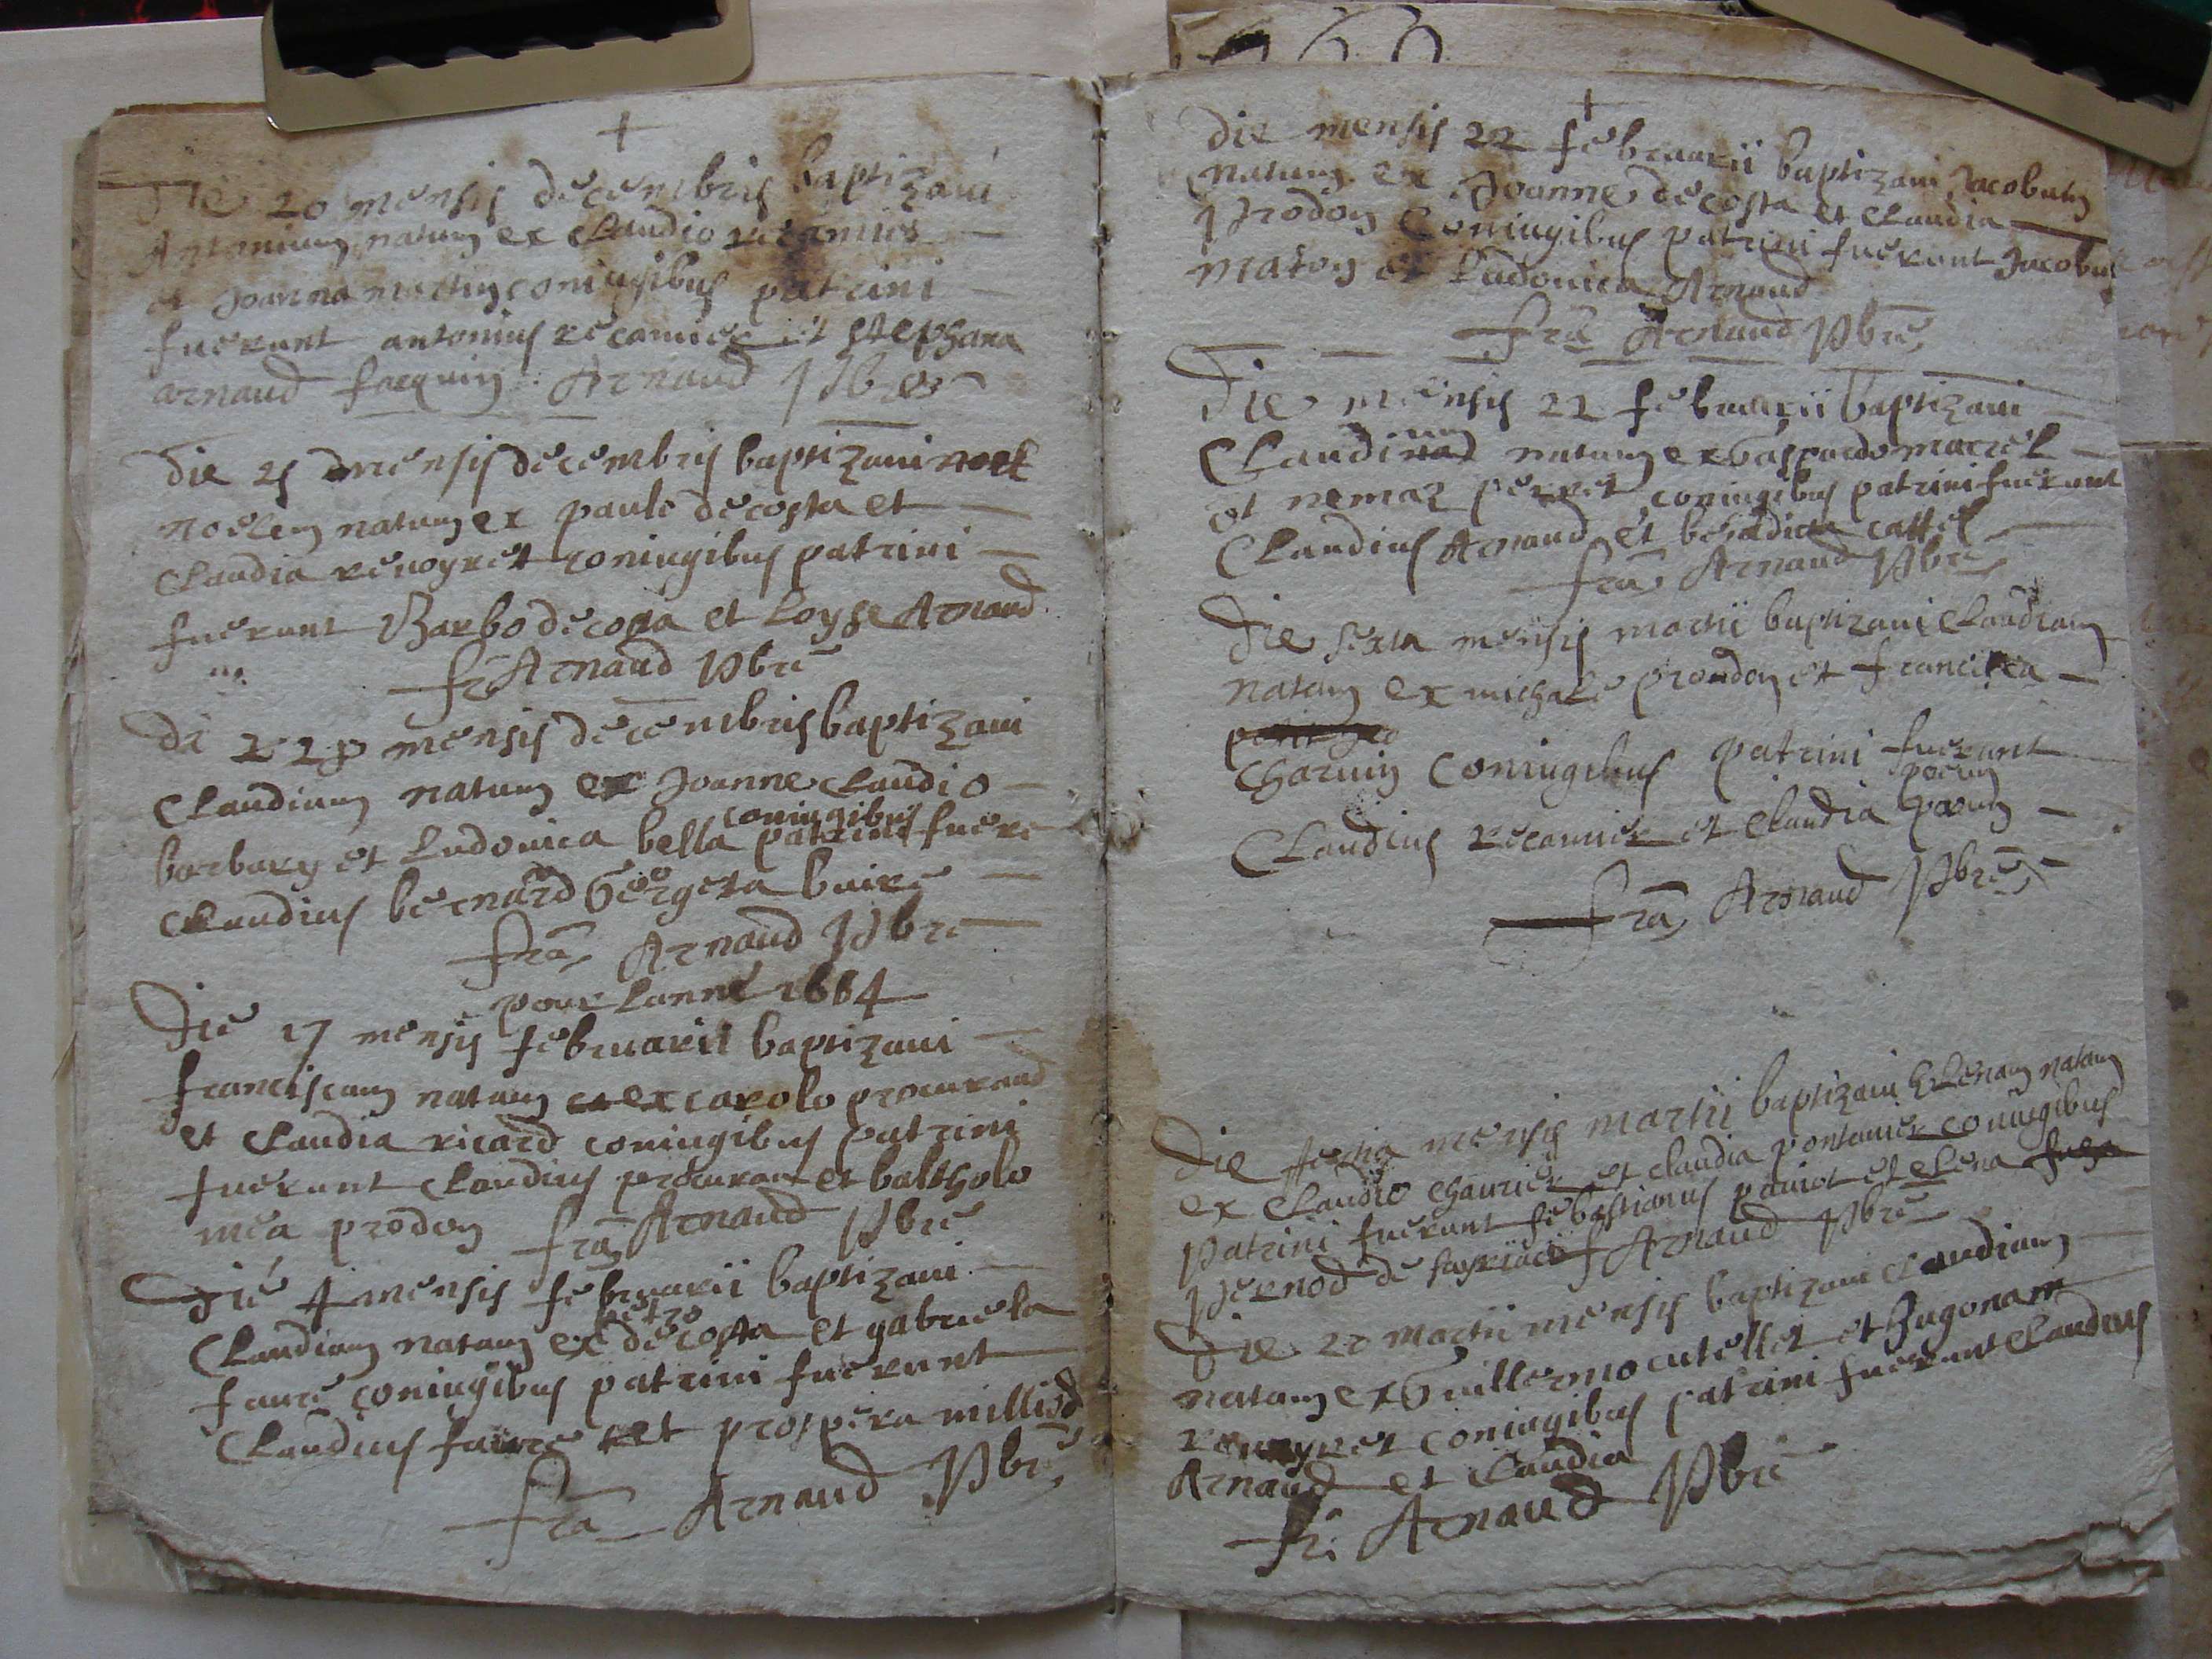 +
Die 20 mensis decembris baptizavi
Antonium natum ex Claudio recamier
et Joanna martin coniugibus patrini
fuerunt antonius recamier et stephana
arnaud Arnaud Pbre
Die 25 mensis decembris baptizavi noel
noelem natum ex paulo decosta et
Claudia renoyret coniugibus patrini
fuerunt Barbo decosta et Loyse Arnaud
fr Arnaud Pbre
mensis decembris baptizavi
Claudium natum ex Joanne Claudio
barbary et Ludovica bella coniugibus patrini fuere
Claudius bernard Georgeta buire
fra Arnaud Pbre
pour lanné 1664
Die 17 mensis februarii baptizavi
franciscam natam ex carolo procuraud
et Claudia ricard coniugibus patrini
fuerunt Claudius et baltholo
mea prodon fra Arnaud Pbre
Die 4 mensis februarii baptizavi
Claudiam natam ex petro decosta et gabriela
faure coniugibus patrini fuerunt
Claudius faure et prospera milliod
fra Arnaud Pbre
+
Die mensis 22 februarii baptizavi Jacobum
natum ex Joanne decosta et Claudia
Prodon Coniugibus patrini fuerunt Jacobus
maton et Ludovica Arnaud
fra Arnaud Pbre
Die mensis 22 februarii baptizavi
natum ex Gaspardo marrel
et perret coniugibus patrini fuerunt
Claudius Arnaud et benedicta cattel
fra Arnaud Pbre
Die sexta mensis martii baptizavi Claudiam
natam ex michaele proudon et francisca
Charvin Coniugibus patrini fuerunt
Claudius recamier et Claudia
fra Arnaud Pbre
Die tertia mensis martii baptizavi helenam natam
ex Claudio chaurier et claudia pontanier coniugibus
Patrini fuerunt sebastianus paviot et elena
Pernod de f Arnaud Pbre
Die 22 martii mensis baptizavi Claudiam
natam ex Guillermo cutellet et hugonam
coniugibus patrini fuerunt Claudius
Arnaud et Claudia
fr: Arnaud Pbre